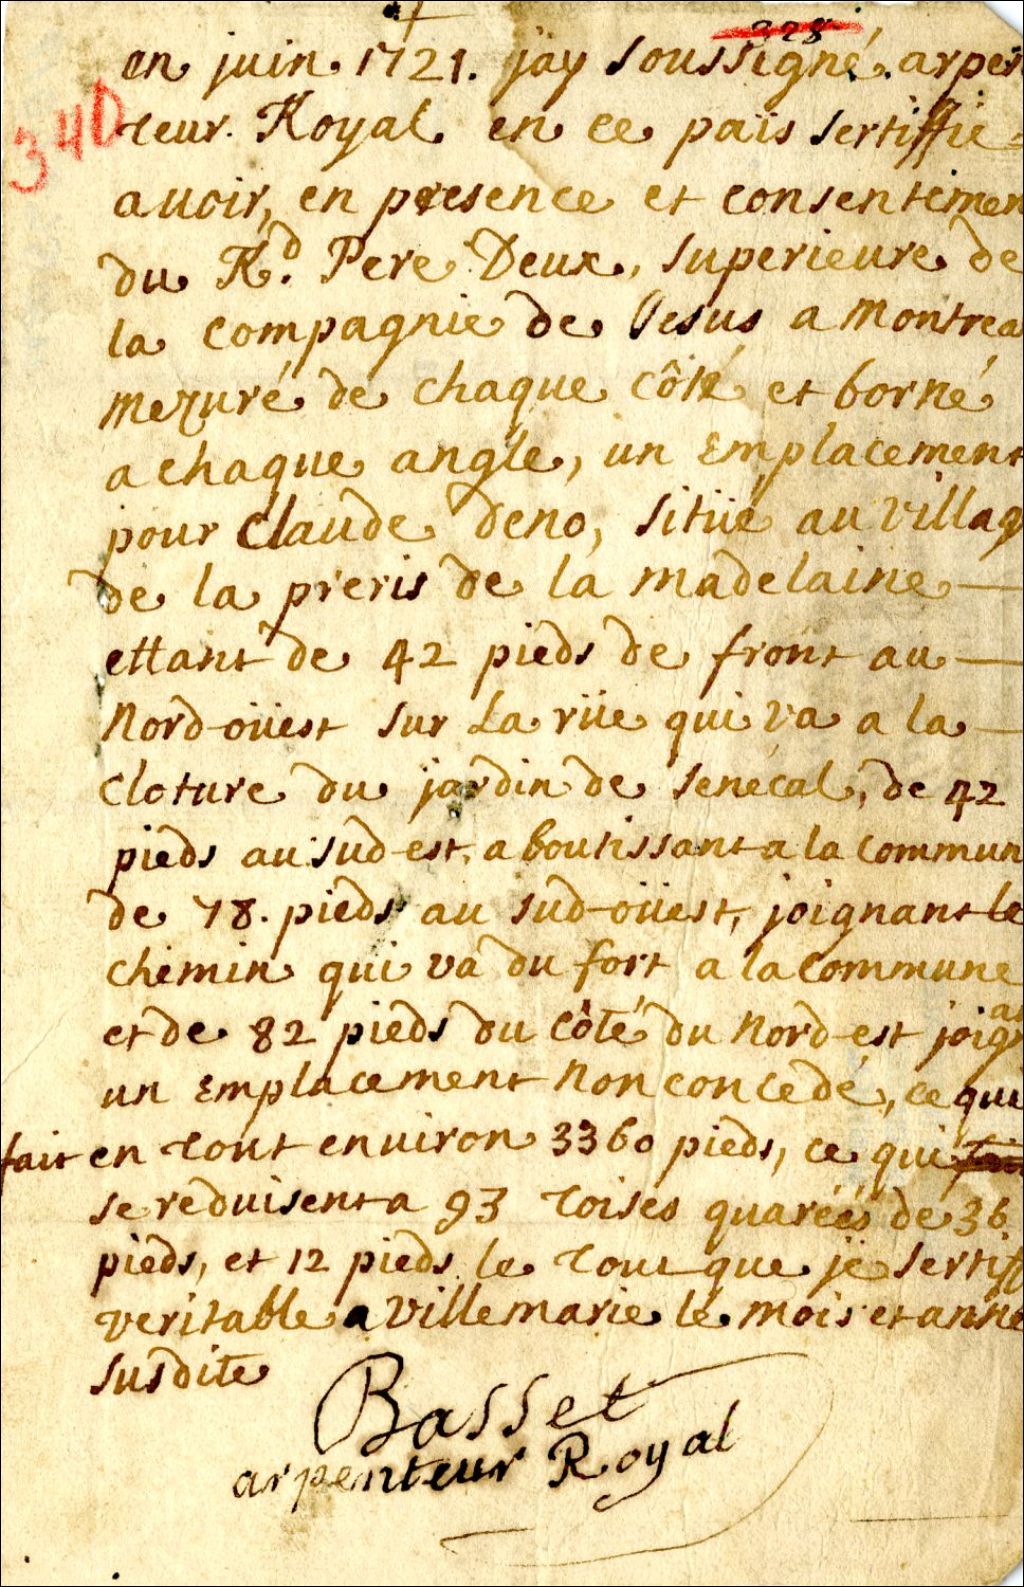 328
340
en juin 1721. j'ay soussigné arpen
teur Royal en ce païs sertiffie
auoir, en presence et consentemen
du Rd. Pere Deux, superieure de
la compagnie de Jesus a montrea
mezuré de chaque côté et borné
a chaque angle, un Emplacement
pour Claude deno, sitüé au villag
de la preris de la madelaine
ettant de 42 pieds de front au
Nord-oüest sur La rüe qui va a la
cloture du jardin de senécal, de 42
pieds au sud-est, aboutissant a la commun
de 78. pieds au sud-oüest, joignant le
chemin qui va du fort a la commune
et de 82 pieds du côté du Nord-est joign
an
un Emplacement Non concedé, ce qui
fait en tout enuiron 3360 pieds, ce qui
se reduisent a 93 toises quaréés de 36
pieds, et 12 pieds le tout que je sertiff
veritable a villemarie lé mois et anné
susdite
Basset
arpenteur Royal